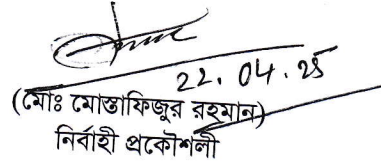 22.04.25
(মোঃ মোস্তাফিজুর রহমান)
নির্বাহী প্রকৌশলী